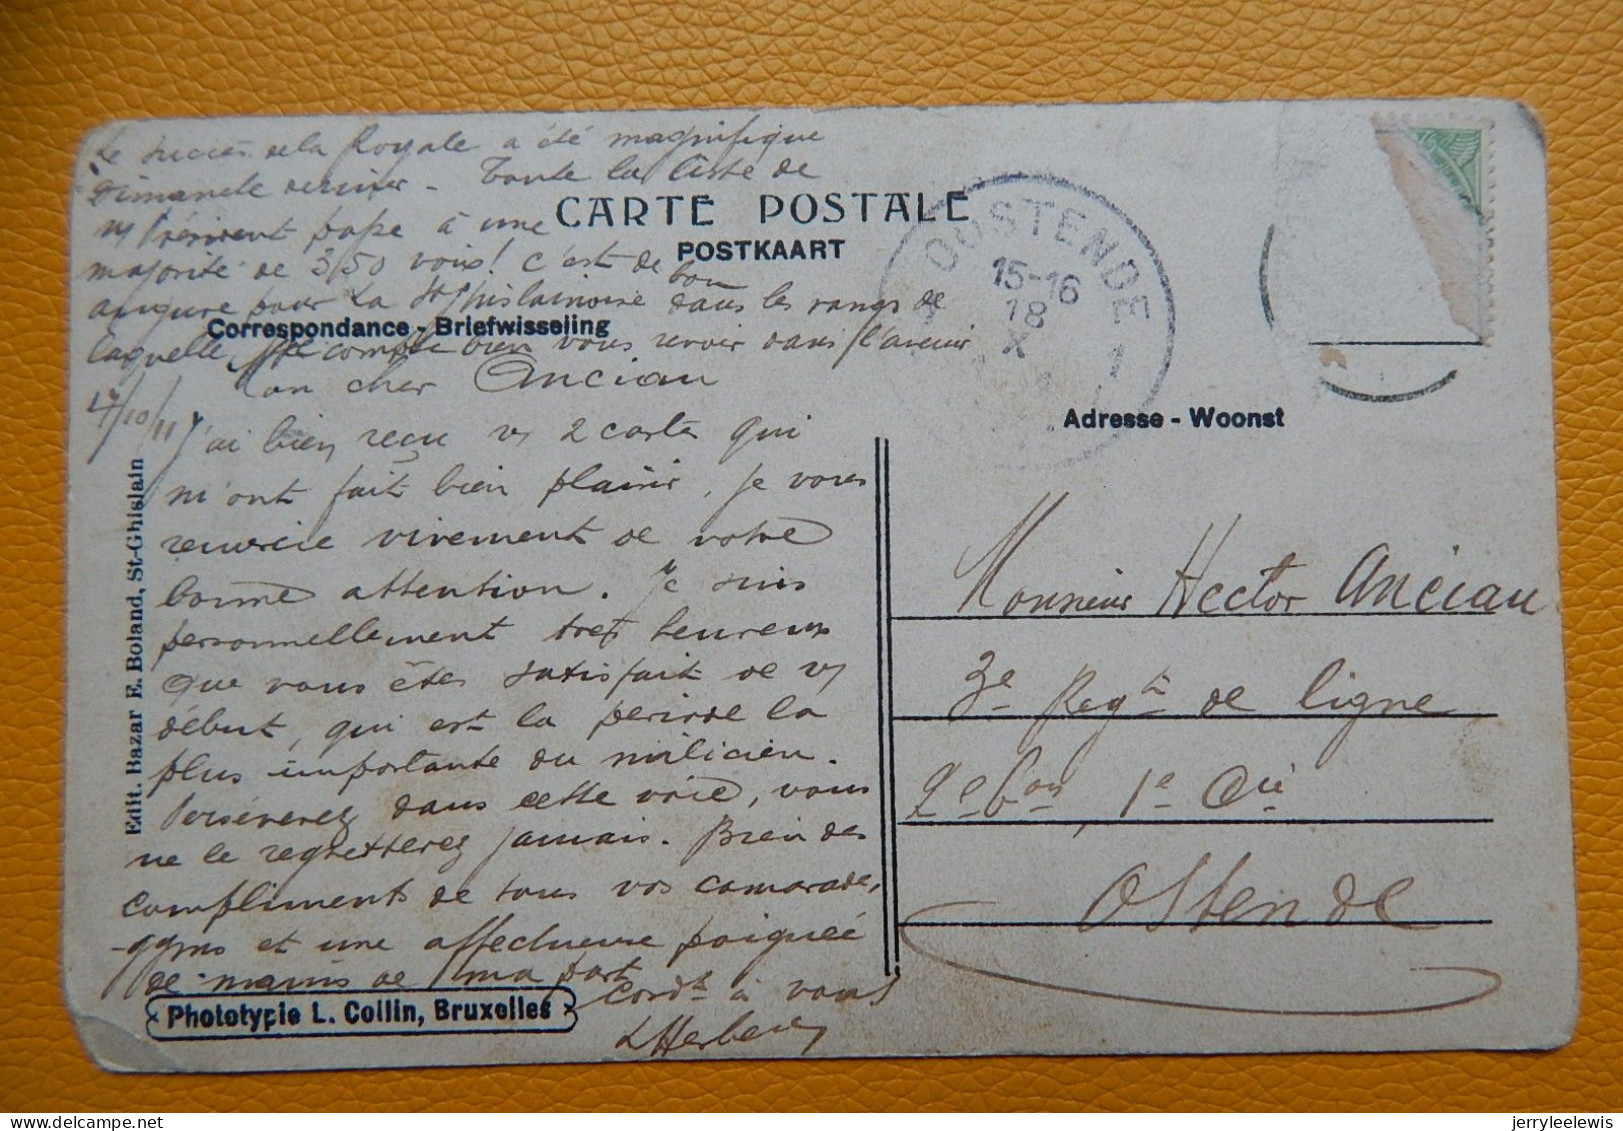 Le succès de la Royale a été magnifique
Dimanche dernier - Toute la liste de
Président passe à une
majorité de 350 voix! c'est de bon
augure pour La St Ghislainoise dans les rangs de
laquelle je compte bien vous revoir dans l'avenir
CARTE POSTALE
POSTKAART
Correspondance - Briefwisseling
OOSTENDE
15-16
18
X
1
Adresse - Woonst
17/10/11
Mon cher Anciau
J'ai bien reçu vs 2 cartes qui
m'ont fait bien plaisir, je vous
remercie vivement de votre
bonne attention. Je suis
personnellement très heureux
que vous êtes satisfait de vs
début, qui est la période la
plus importante du milicien.
Persévérez dans cette voie, vous
ne le regretterez jamais. Bien des
compliments de tous vos camarades
gyms et une affectueuse poignée
de mains de ma part
Cordt à vous
LHerbe
Monsieur Hector Anciau
3e Regt de ligne
2e bon, 1e Cie
Ostende
Edit. Bazar E. Boland, St-Ghislain
Phototypie L. Collin, Bruxelles
jerryleelewis
delcampe.net